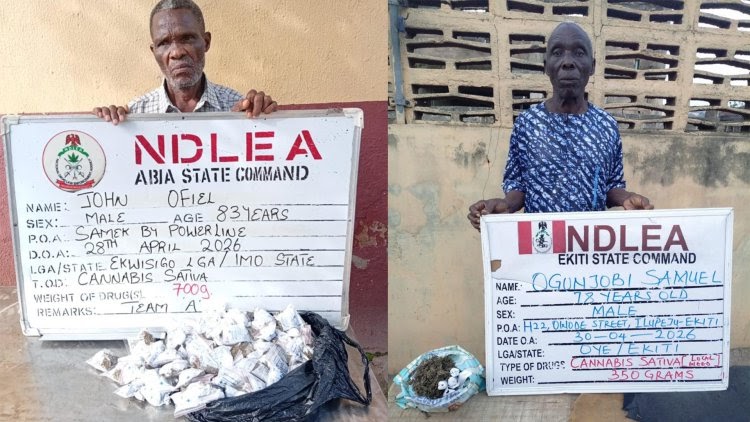 NDLEA
ABIA STATE COMMAND
NAME: JOHN OFIEL
SEX: MALE AGE 83 YEARS
P.O.A: SAMEK BY POWERLINE
D.O.A: 28TH APRIL 2026
LGA/STATE: EKWISIGO LGA/ IMO STATE
T.O.D: CANNABIS SATIVA
WEIGHT OF DRUG(S) 700g
REMARKS: TEAM "A"
NDLEA
EKITI STATE COMMAND
NAME: OGUNJOBI SAMUEL
AGE: 78 YEARS OLD
SEX: MALE
P.O.A: H22, OWODE STREET, ILUPEJU-EKITI
DATE O.A: 30-04-2026
LGA/STATE: OYE/EKITI
TYPE OF DRUGS: CANNABIS SATIVA
WEIGHT: 350 GRAMS